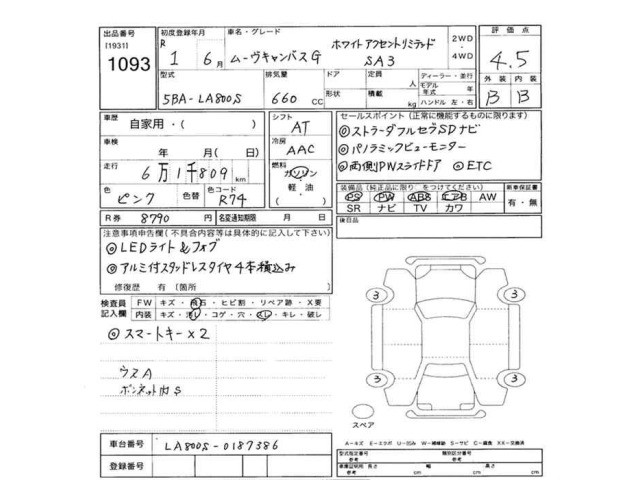 出品番号
[1931]
1093
初度登録年月
R 1 6月
車名・グレード
ムーヴキャンバスG ホワイトアクセントリミテッド SA3
2WD・4WD
評価点
4.5
外装 内装
B B
型式
5BA-LA800S
排気量
660 CC
ドア
形状
定員 人
積載 kg
ディーラー・並行
モデル年式 年
ハンドル 左・右
車歴
自家用・( )
シフト
AT
車検
年 月(日)
冷房
AAC
走行
6万1千809km
燃料
ガソリン
軽油
色
ピンク
色替
色コード
R74
R券 8790 円
名変通知期限 月 日
セールスポイント (正常に機能するものに限ります)
◎ストラーダフルセグSDナビ
◎パノラミックビューモニター
◎両側PWスライドドア ◎ETC
装備品(純正品に限り○をつけてください)
PS PW ABS エアB AW
SR ナビ TV カワ
新車保証書
有・無
後日品
注意事項申告欄(不具合内容等は具体的に記入して下さい)
◎LEDライト&フォグ
◎アルミ付スタッドレスタイヤ4本積込み
修復歴 有(箇所 )
検査員記入欄
FW キズ・飛石・ヒビ割・リペア跡・X要
内装 キズ・汚レ・コゲ・穴・スレ・キレ・破レ
◎スマートキー×2
ウスA
ボンネット内S
3 3
3 3
スペア
A-キズ E-エクボ U-凹み W-補修跡 S-サビ C-腐食 XX-交換済
車台番号 LA800S-0187386
登録番号
型式指定番号
参考
類別区分番号
参考
車庫証明用
参考
長さ cm 幅 cm 高さ cm